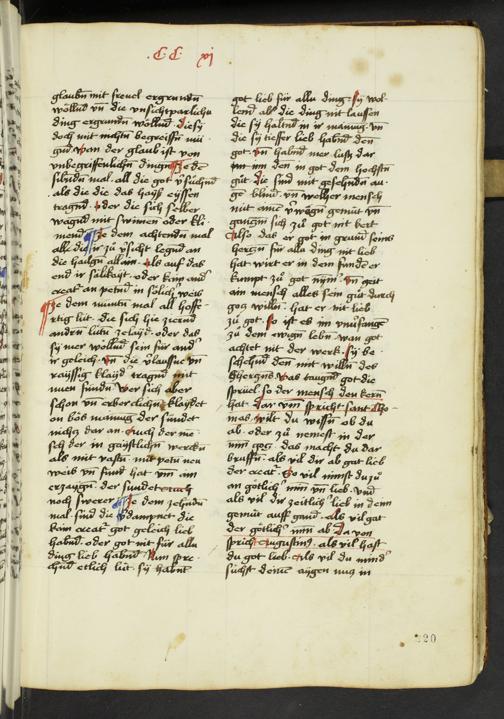 CC xj
glaubn mit frevel ergrundn
wöllnd vn die vnsichtparlichn
ding ergrundn wöllnd diesy
doch mit nichtn begreiffn mü
gnd wan der glaub ist von
vnbegreiffenlichn dingn Ze de
sibndn mal all die got v̈suchnd
als die die das hayß eyssen
tragnd oder die sich selber
wägnd mit swimen oder kli
Ze dem achtendn mal
all die ir zu v̈sicht legnd an
die hailgn allain als auf das
end ir sälikait oder kain and
creat an petnd in sölich weis
Ze dem nuintn mal all hoffe
rtig lüt die sich hie ziernd
andrn lütn zelaid oder das
sy mer wöllnd sein für and
ir geleich
raÿssig klayd tragnd mit
wer sich aber
schon vn erberclichn klaydet
on bös mainug der sündet
nichtz dar an auch der me
sch der in gaÿstlichn werckn
als mit vastn mit petn neu
weib vn kind hat vnn am
der sundet auch
noch swerer Ze dem zehendn
mal sind die v̈dampnet die
kain creat got geleich lieb
habnd oder got nit für allu
ding lieb habnd Nun spre
chnd etlich lüt sy habnt
got lieb für allu ding sy wol
lend als die ding nit laussen
die sy haltnd in ir mainug vn
die sy tieffer lieb habnd den
got vn habnd mer lust dar
inn den in got dem höchstn
güt die sind mit gesehendn au
gn blind vn wellher mensch
mit aim v̈wegn gemüt vn
gantzm sich zu got nit kert
Also das er got in grund seins
hertzn für allu ding nit lieb
hat wirt er in dem funden er
kumpt zu got nym vn geit
ain mensch alles sein gut durch
gotz willn hat er nit lieb
zu got so ist es im
zu dem ewign lebn wan got
achtet nit der werk sy be
schehnd den mit willn des
hertzns was taugnd got die
sprüel so der mensch den kern
hat Dar vm spricht sant Tho
mas wilt du wissn ob du
ab oder zu nemest in der
mm gotz das macht du dar
als vil dir ab gat lieb
der creat so vil nimst du zu
an götlich mm vn lieb vnd
als vil dir zeitlich lieb in dein
gemüt auff gand als vil gat
der götlich mm ab Da von
sprich Augustin9 als vil hast
du got lieb als vil du mind
suchst deinen aygen nutz in
220